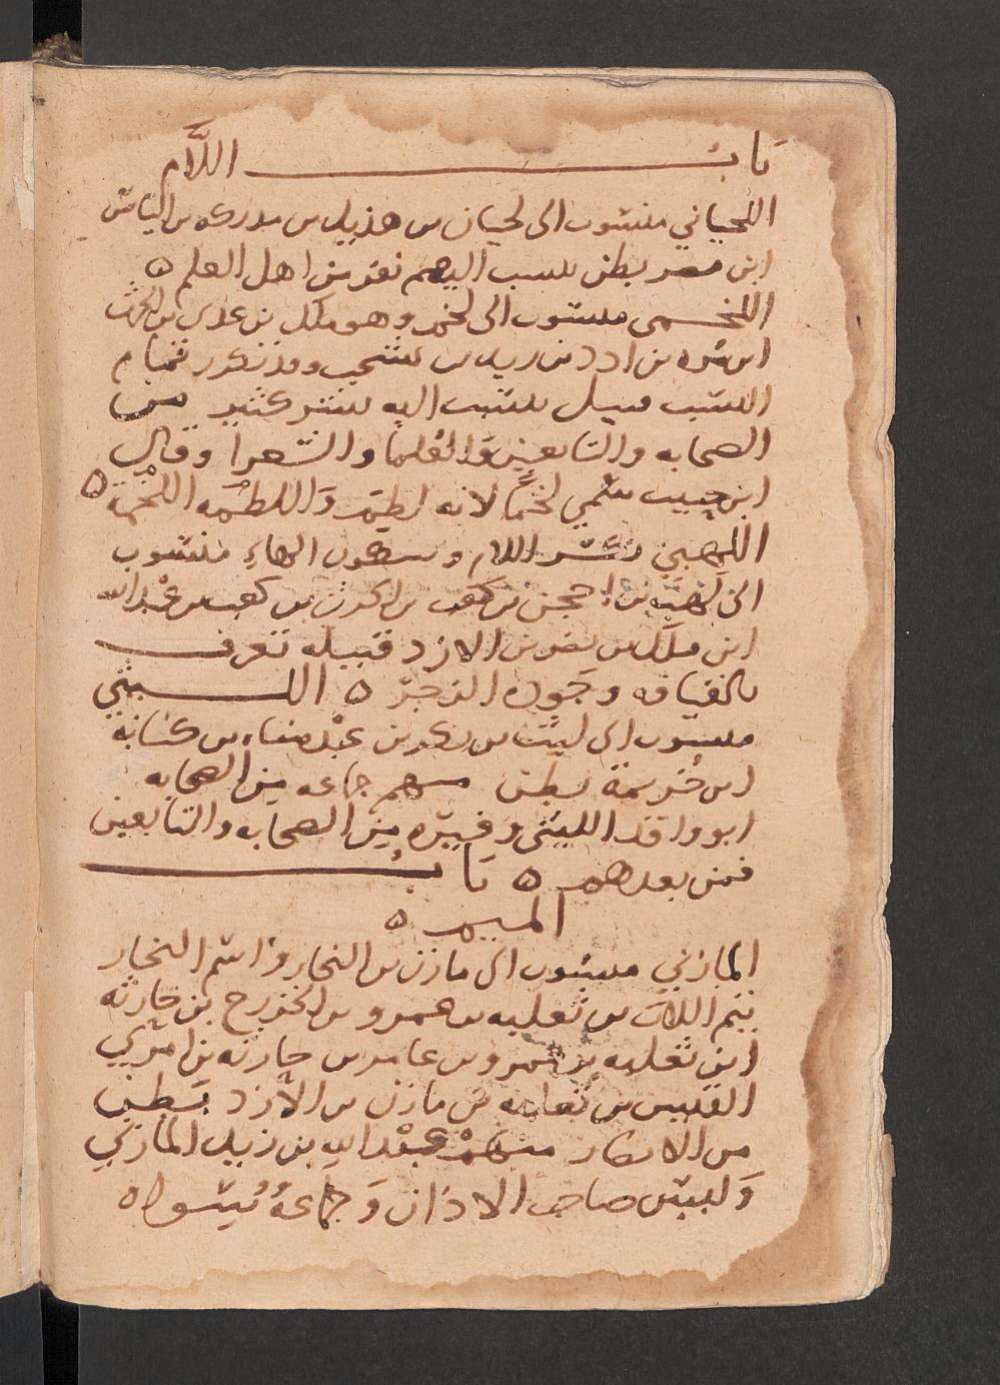 باب اللام
اللحياني منسوب الى لحيان بن هذيل بن مدركه بن الياس
ابن مضر بطن ينسب اليهم نفر من اهل العلم ه
اللخمي منسوب الى لخم وهو ملك بن عدي بن الحرث
ابن مره بن ادد بن زيد بن يشجب وقد تكرر تمام
النسب قبيل ينسب اليه بشر كثير من
الصحابه والتابعين والعُلما والشعرا وقال
ابن حبيب سمي لخمًا لانه لطم واللطمه اللخمة ه
اللهبي بكسر اللام وسكون الهاءِ منسوب
الى لهب بن احجن بن كعب بن الحرث بن كعب بن عبد الله
ابن ملك بن نصر بن الازد قبيله تعرف
بالقيافه وجوده الزجر ه الليثي
منسوب الى ليث بن بكر بن عبد مناه بن كنانة
ابن خُزيمة بطن منهم جماعه من الصحابه
ابو واقد الليثي وغيره من الصحابه والتابعين
فمن بعدهم ه بابُ
الميم ه
المازني منسوب الى مازن بن النجار واسم النجار
تيم اللات بن ثعلبه بن عمرو بن الخزرج بن حارثه
ابن ثعلبه بن عمرو بن عامر بن حارثه بن امري
القيس بن ثعلبه بن مازن بن الأزد بطن
من الانصار منهم عبد الله بن زيد المازني
وَليس صاحب الاذان وَجماعةُ نُسِبُوا ه